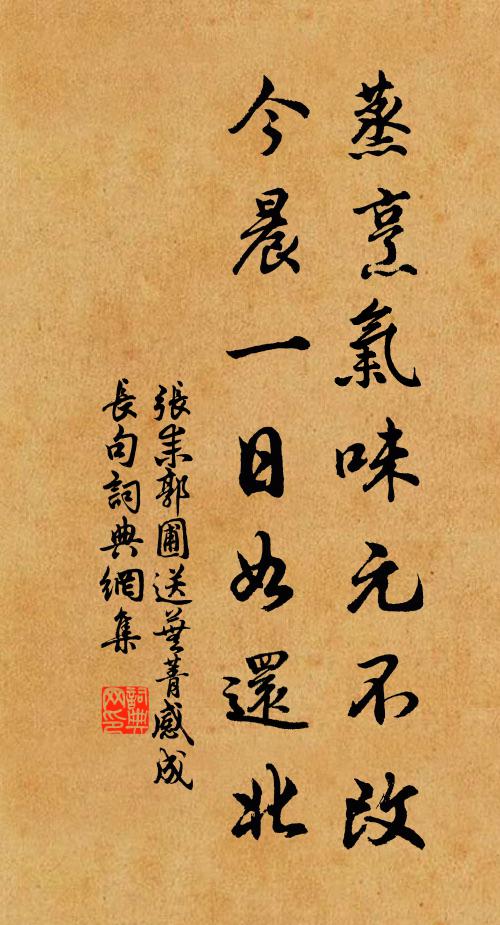 蒸烹氣味元不改
今晨一日如還北
張耒郭圃送蕪菁感成
長句詞典網集
詞典
网印